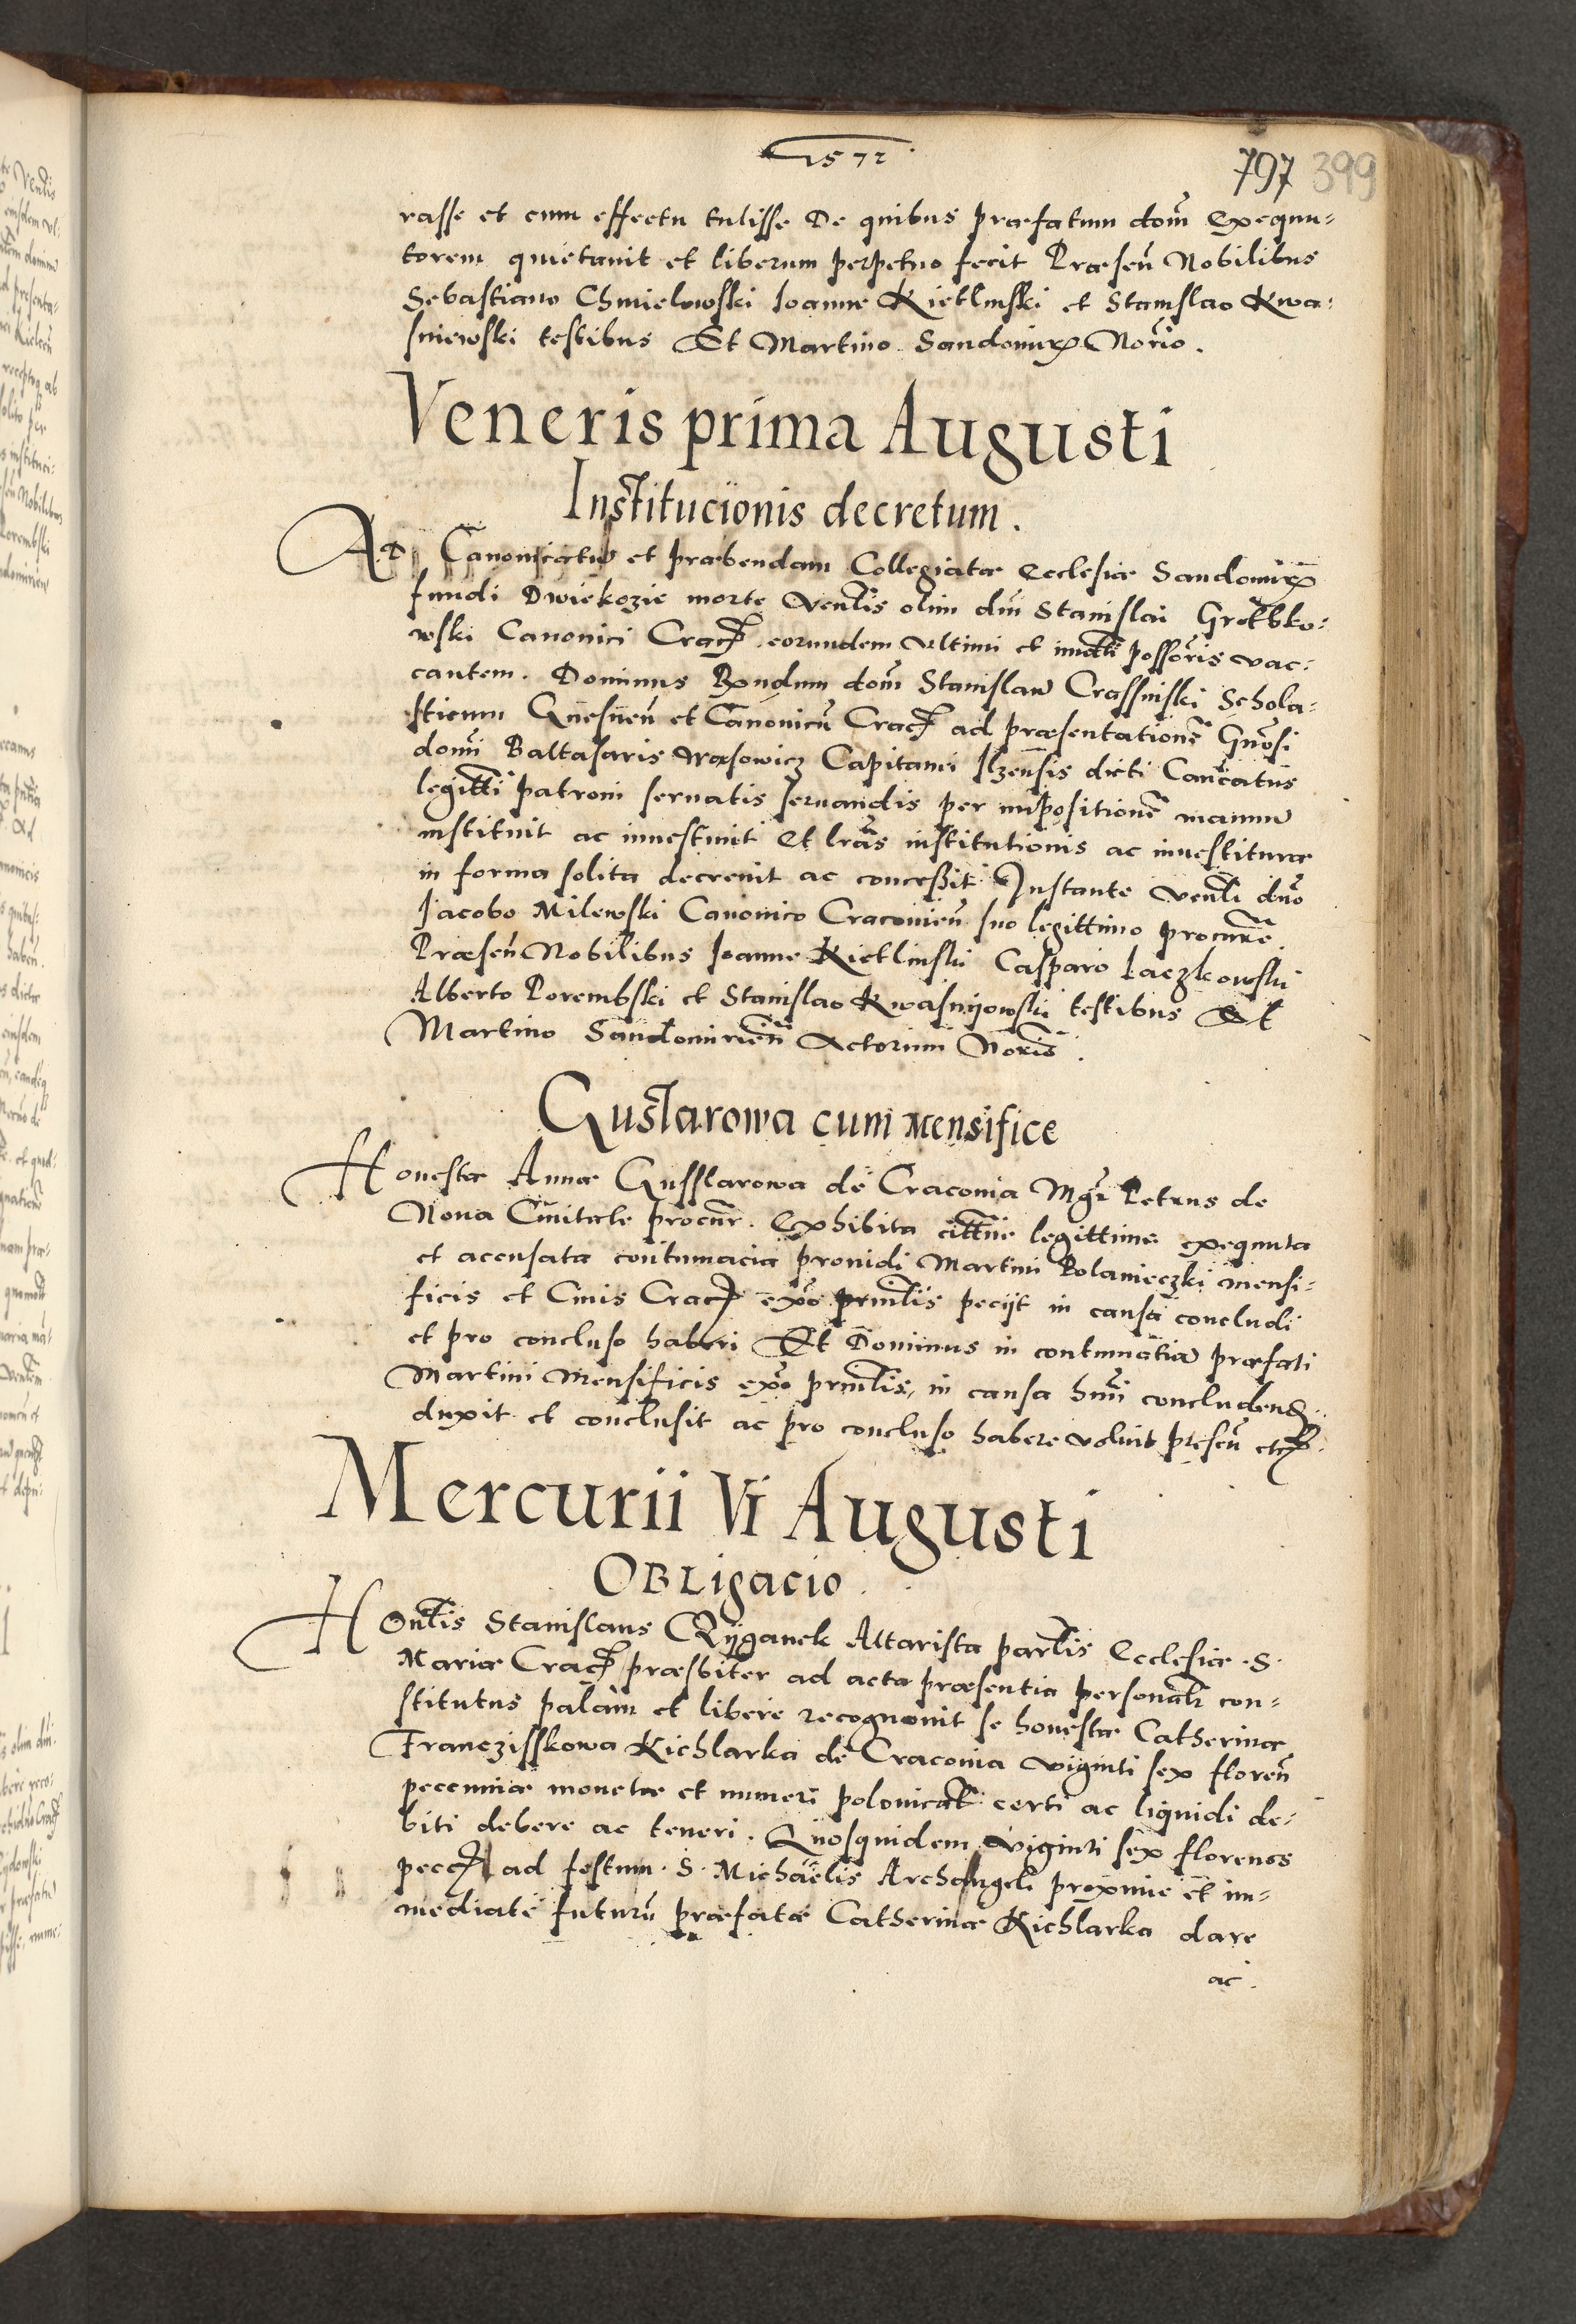 1572
797 399
rasse et cum effectu tulisse De quibus præfatum dom̃ Exequu-
torem quietauit et liberum perpetuo fecit Præseñ Nobilibus
Sebastiano Chmielowski Joanne Kietlinski et Stanislao Kwa-
sniewski testibus Et Martino Sandomir̃ Norio.
Veneris prima Augusti
Institucionis decretum.
Ad Canonicatũ et præbendam Collegiatæ Ecclesiæ Sandomir̃
fundi Dwiekozie morte Venlis olim dñi Stanislai Grebko-
wski Canonici Crac̃ eorundem vltimi et imẽti possoris vac-
cantem. Dominus Rndum dom̃ Stanislaũ Crassinski Schola-
sticum Gnesneñ et Canonicũ Crac̃ ad præsentationẽ Gnosi
domi Baltasaris Wąsowicz Capitanei Ilzensis dicti Canõcatus
legitti patroni seruatis seruandis per impositionẽ manuũ
instituit ac inuestiuit Et lras institutionis ac inuestituræ
in forma solita decreuit ac concessit. Instante Venli dño
Jacobo Milewski Canonico Cracouieñ suo legittimo procurẽ.
Præseñ Nobilibus Joanne Kietlinski Casparo Laczkowski
Alberto Porembski et Stanislao Kwasnyowski testibus Et
Martino Sandomirieñ Actorum Norio.
Guslarowa cum Mensifice
Honestæ Annæ Gusslarowa de Craconia Mgr Petrus de
Noua Ciuitate procur̃. Exhibita cittne legittime exequuta
et accusata contumacia prouidi Martini Polanieczki mensi-
ficis et Ciuis Crac̃ exõ prmlis peciit in causa concludi
et pro concluso haberi Et Dominus in contumatiã præfati
Martini Mensificis exõ prmlis, in causa hmõi concludend.
duxit et conclusit ac pro concluso habere voluit præseñ etc.
Mercurii Vi Augusti
Obligacio.
Honlis Stanislaus Ryganek Altarista parlis Ecclesiæ .S.
Mariæ Crac̃ præsbiter ad acta præsentia personalr con-
stitutus palam et libere recognouit se honestæ Catherinæ
Franczisskowa Kichlarka de Craconia viginti sex floreñ
pecuniæ monetæ et numeri polonicał certi ac liquidi de-
biti debere ac teneri. Quosquidem viginti sex florenos
pecc̃ ad festum .S. Michaëlis Archangeli proxime et im-
mediate futurũ præfatæ Catherinæ Kichlarka dare
ac.